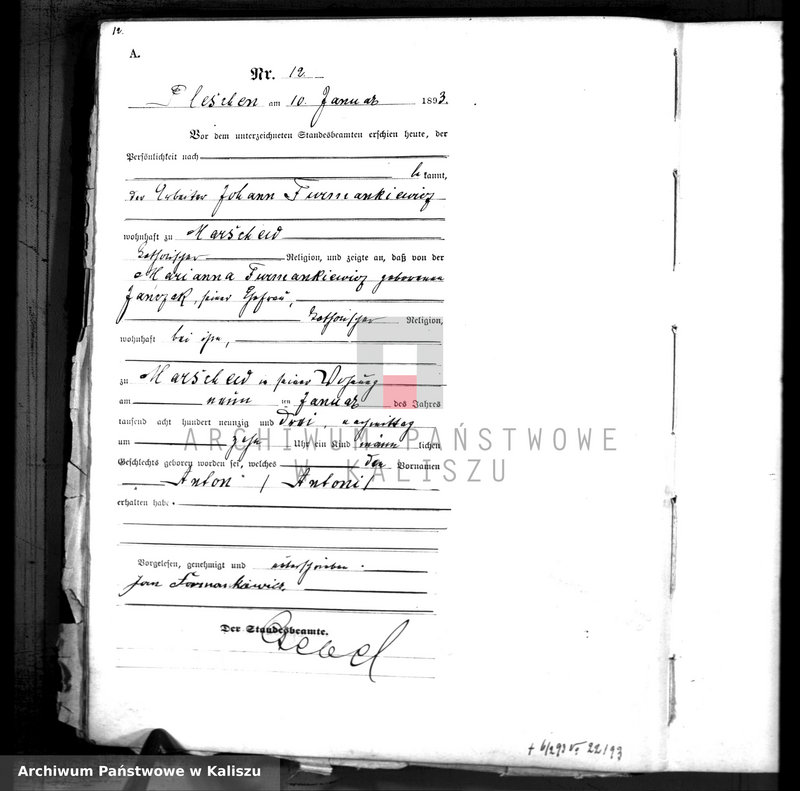 12.
A.
Nr. 12
Pleschen am 10. Januar 1893.
Vor dem unterzeichneten Standesbeamten erschien heute, der
Persönlichkeit nach
bekannt,
der Arbeiter Johann Furmankiewicz
wohnhaft zu Marschew
katholischer Religion, und zeigte an, daß von der
Marianna Furmankiewicz geborenen
Janczak, seiner Ehefrau,
katholischer Religion,
wohnhaft bei ihm,
zu Marschew in seiner Wohnung
am neun ten Januar des Jahres
tausend acht hundert neunzig und drei, nachmittag
um zehn Uhr ein Kind männlichen
Geschlechts geboren worden sei, welches den Vornamen
Anton / Antoni /
erhalten habe.
Vorgelesen, genehmigt und unterschrieben.
Jan Formankiewicz.
Der Standesbeamte.
+ 22/93
ARCHIWUM PAŃSTWOWE
W KALISZU
Archiwum Państwowe w Kaliszu